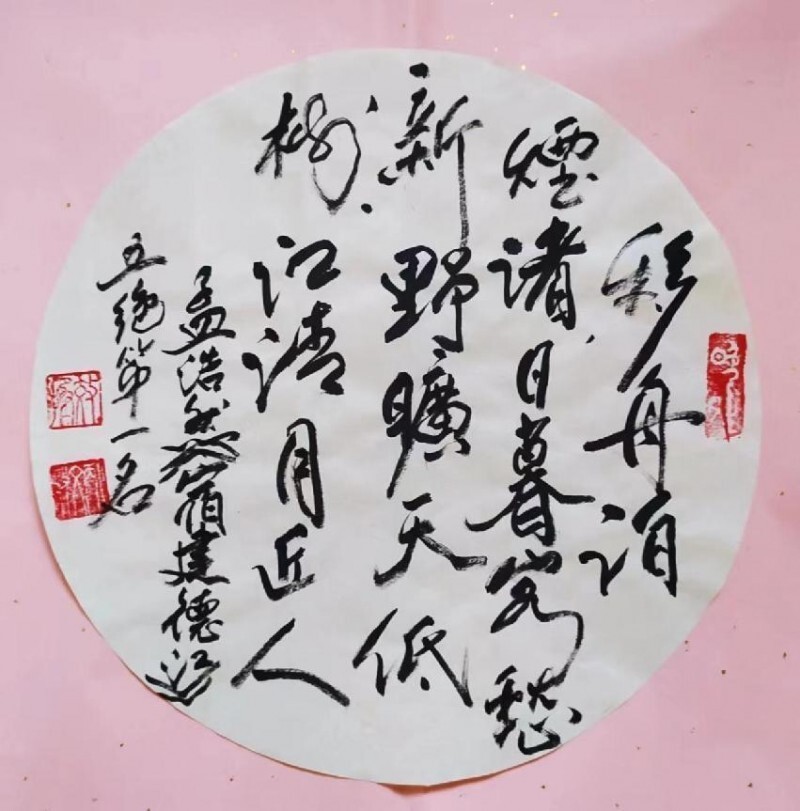 移舟泊
煙渚日暮客愁
新野曠天低
樹江清月近
人
孟浩然宿建德江
五絕第一名